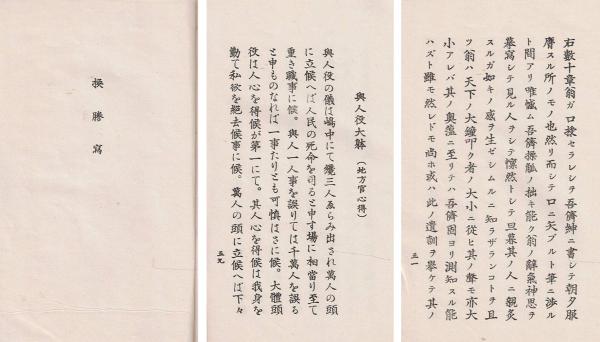 右數十章翁ガ口授セラレシヲ吾儕紳ニ書シテ朝夕服
膺スル所ノモノ也然リ而シテ口ニ矢ブルト筆ニ渉ル
ト間アリ唯憾ム吾儕操觚ノ拙キ能ク翁ノ辭氣神思ヲ
摹寫シテ見ル人ヲシテ懍然トシテ旦暮其ノ人ニ親炙
スルガ如キノ感ヲ生ゼシムルニ知ラザランコトヲ且
ツ翁ハ天下ノ大鐘叩ク者ノ大小ニ從ヒ其ノ聲モ亦大
小アレバ其ノ奥蘊ニ至リテハ吾儕固ヨリ測知スル能
ハズト雖モ然レドモ尚ホ或ハ此ノ遺訓ヲ擧ケテ其ノ
三一
與人役大躰（地方官心得）
與人役の儀は嶋中にて纔三人ゑらみ出され萬人の頭
に立候へば人民の死命を司ると申す場に相當り至て
重き職事に候。與人一人事を誤りては千萬人を誤る
と申ものなれば一事たりとも可愼はさに候。大體頭
役は人心を得候が第一にて。其人心を得候は我身を
勤て私欲を絶去候事に候。萬人の頭に立候へば下々
五九
換勝寫